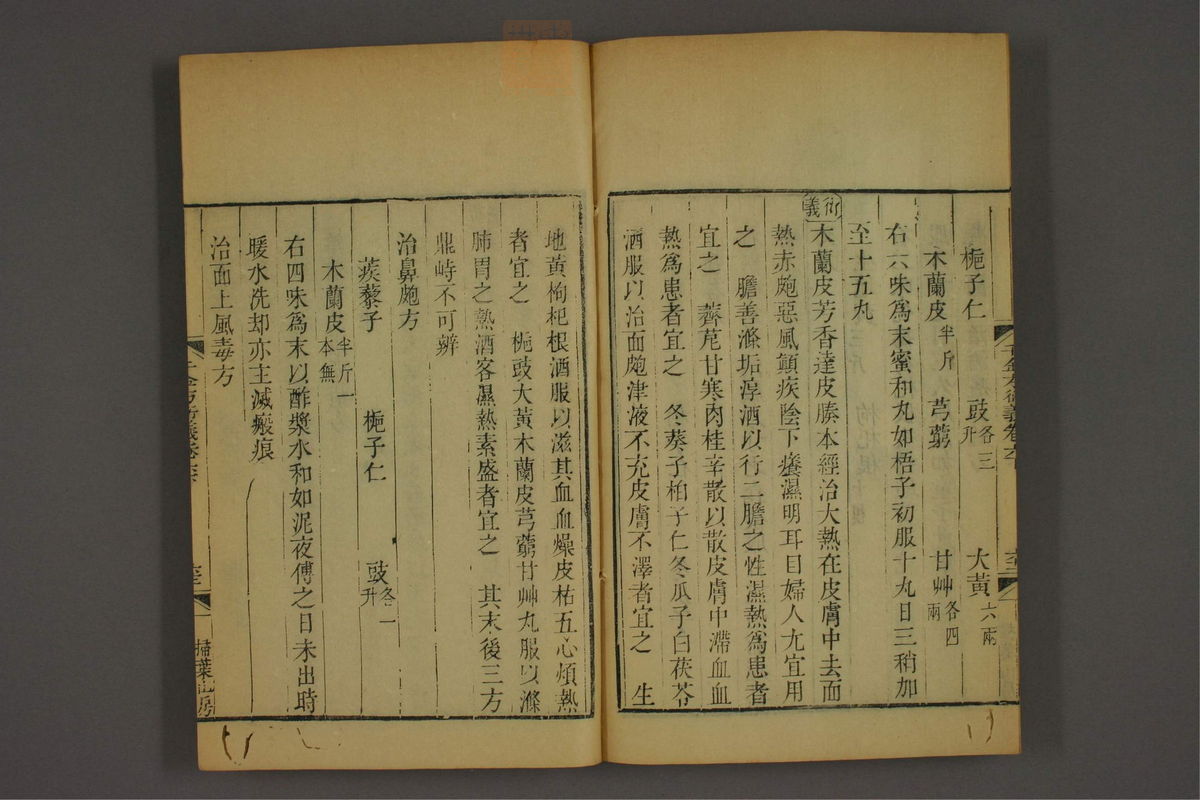 梔子仁　豉各三升　大黃六兩
木蘭皮半斤　芎藭　甘艸各四兩
右六味爲末蜜和丸如梧子初服十丸日三稍加
至十五丸
衍義木蘭皮芳香達皮腠本經治大熱在皮膚中去面
熱赤皰惡風顚疾陰下癢濕明耳目婦人尤宜用
之　膽善滌垢淳酒以行二膽之性濕熱爲患者
宜之　薺苨甘寒肉桂辛散以散皮膚中滯血血
熱爲患者宜之　冬葵子柏子仁冬瓜子白茯苓
酒服以治面皰津液不充皮膚不澤者宜之　生
地黃枸杞根酒服以滋其血血燥皮枯五心煩熱
者宜之　梔豉大黃木蘭皮芎藭甘艸丸服以滌
肺胃之熱酒客濕熱素盛者宜之　其末後三方
鼎峙不可辨
治鼻皰方
蒺藜子　梔子仁　豉各一升
木蘭皮半斤一本無
右四味爲末以酢漿水和如泥夜傅之日未出時
暖水洗却亦主滅瘢痕
治面上風毒方
千金方衍義卷
掃葉山房